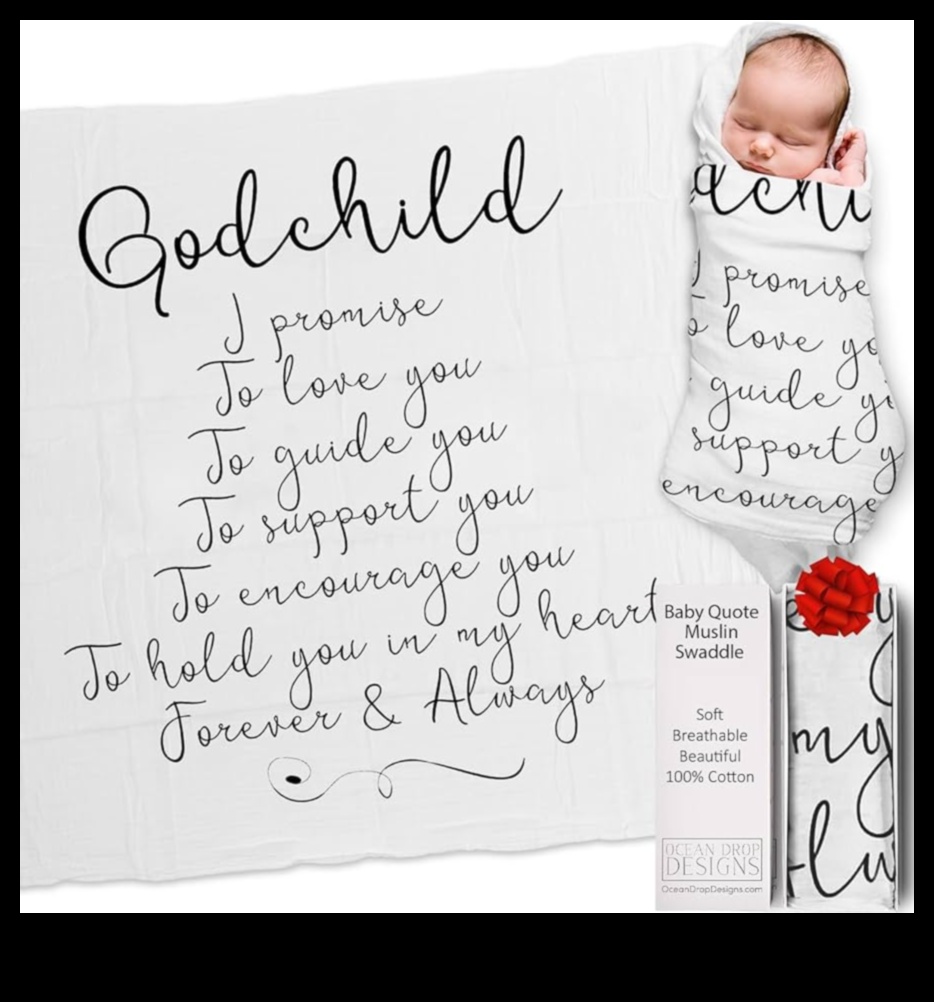 Godchild
I promise
To love you
To guide you
To support you
To encourage you
To hold you in my heart
Forever & Always
dchi
I promise
o love yo
guide y
support y
encourage
Baby Quote
Muslin
Swaddle
Soft
Breathable
Beautiful
100% Cotton
OCEAN DROP
DESIGNS
OceanDropDesigns.com
y
my